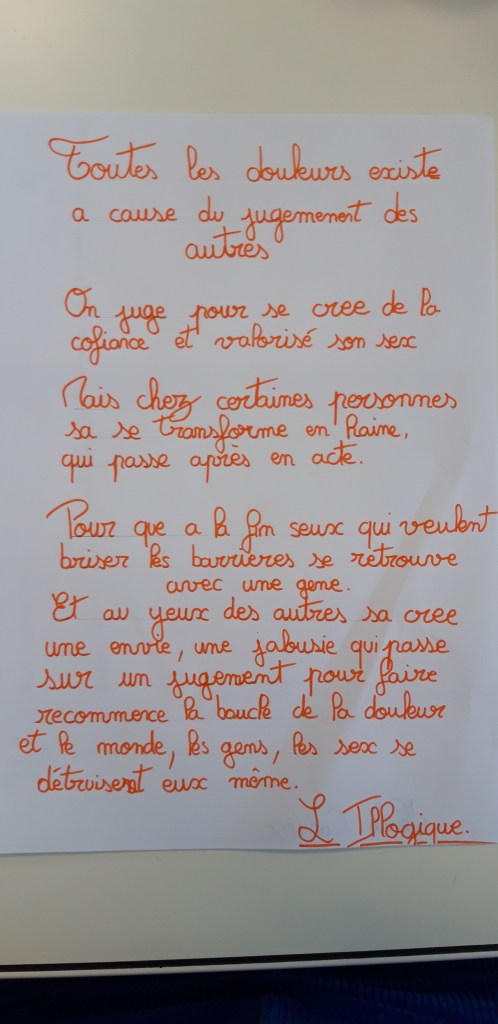 Toutes les douleurs existe
a cause du jugemement des
autres
On juge pour se cree de la
cofiance et valorisé son sex
Mais chez certaines personnes
sa se transforme en haine,
qui passe après en acte.
Pour que a la fin seux qui veulent
briser les barrières se retrouve
avec une gene.
Et au yeux des autres sa cree
une envie, une jalousie qui passe
sur un jugement pour faire
recommence la boucle de la douleur
et le monde, les gens, les sex se
détruisent eux même.
L Illogique.